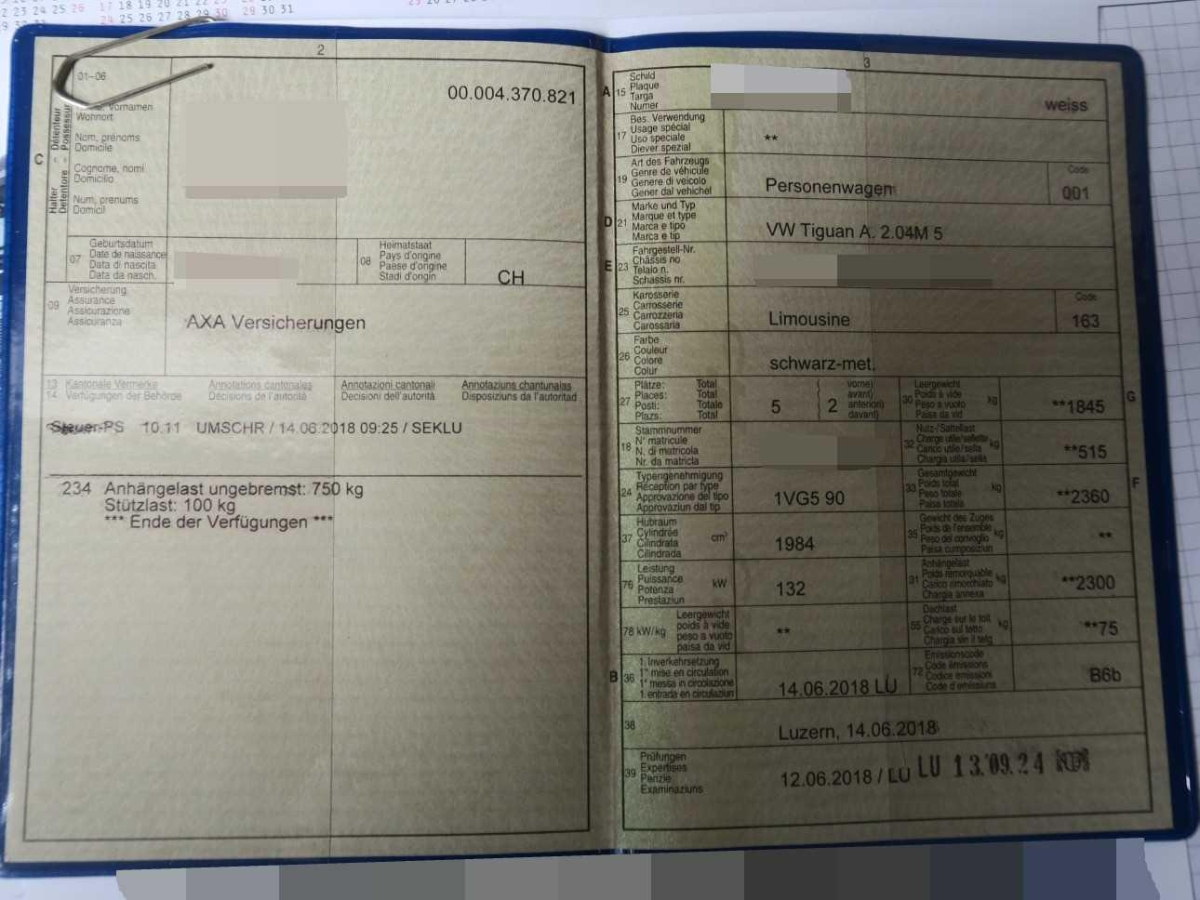 2
01-06
00.004.370.821
Name, Vornamen
Wohnort
Nom, prénoms
Domicile
Cognome, nomi
Domicilio
Num, prenums
Domicil
C
Halter Détenteur
Detentore Possessur
07
Geburtsdatum
Date de naissance
Data di nascita
Data da nasch.
08
Heimatstaat
Pays d'origine
Paese d'origine
Stadi d'origin
CH
09
Versicherung
Assurance
Assicurazione
Assicuranza
AXA Versicherungen
13 Kantonale Vermerke Annotations cantonales Annotazioni cantonali Annotaziuns chantunalas
14 Verfügungen der Behörde Décisions de l'autorité Decisioni dell'autorità Disposiziuns da l'autoritad
Steuer-PS 10.11 UMSCHR / 14.06.2018 09:25 / SEKLU
234 Anhängelast ungebremst: 750 kg
Stützlast: 100 kg
*** Ende der Verfügungen ***
3
A 15
Schild
Plaque
Targa
Numer
weiss
17
Bes. Verwendung
Usage spécial
Uso speciale
Diever spezial
**
19
Art des Fahrzeugs
Genre de véhicule
Genere di veicolo
Gener dal vehichel
Personenwagen
Code
001
D 21
Marke und Typ
Marque et type
Marca e tipo
Marca e tip
VW Tiguan A. 2.04M 5
E 23
Fahrgestell-Nr.
Châssis no
Telaio n.
Schassis nr.
25
Karosserie
Carrosserie
Carrozzeria
Carossaria
Limousine
Code
163
26
Farbe
Couleur
Colore
Colur
schwarz-met.
27
Plätze: Total
Places: Total
Posti: Totale
Plazs: Total
5
2
vorne)
avant)
anteriori)
davant)
30
Leergewicht
Poids à vide
Peso a vuoto
Paisa da vid
kg
**1845
G
18
Stammnummer
N° matricule
N. di matricola
Nr. da matricla
32
Nutz-/Sattellast
Charge utile/sellette
Carico utile/sella
Chargia utila/sella
kg
**515
24
Typengenehmigung
Réception par type
Approvazione del tipo
Approvaziun dal tip
1VG5 90
33
Gesamtgewicht
Poids total
Peso totale
Paisa totala
kg
**2360
F
37
Hubraum
Cylindrée
Cilindrata
Cilindrada
cm³
1984
35
Gewicht des Zuges
Poids de l'ensemble
Peso del convoglio
Paisa cumposiziun
kg
**
76
Leistung
Puissance
Potenza
Prestaziun
kW
132
31
Anhängelast
Poids remorquable
Carico rimorchiato
Chargia annexa
kg
**2300
78 kW/kg
Leergewicht
poids à vide
peso a vuoto
paisa da vid
**
55
Dachlast
Charge sur le toit
Carico sul tetto
Chargia sin il tetg
kg
**75
B 36
1. Inverkehrsetzung
1re mise en circulation
1a messa in circolazione
1. entrada en circulaziun
14.06.2018 LU
72
Emissionscode
Code émissions
Codice emissioni
Code d'emissiuns
B6b
38
Luzern, 14.06.2018
39
Prüfungen
Expertises
Perizie
Examinaziuns
12.06.2018 / LU LU 13.09.24